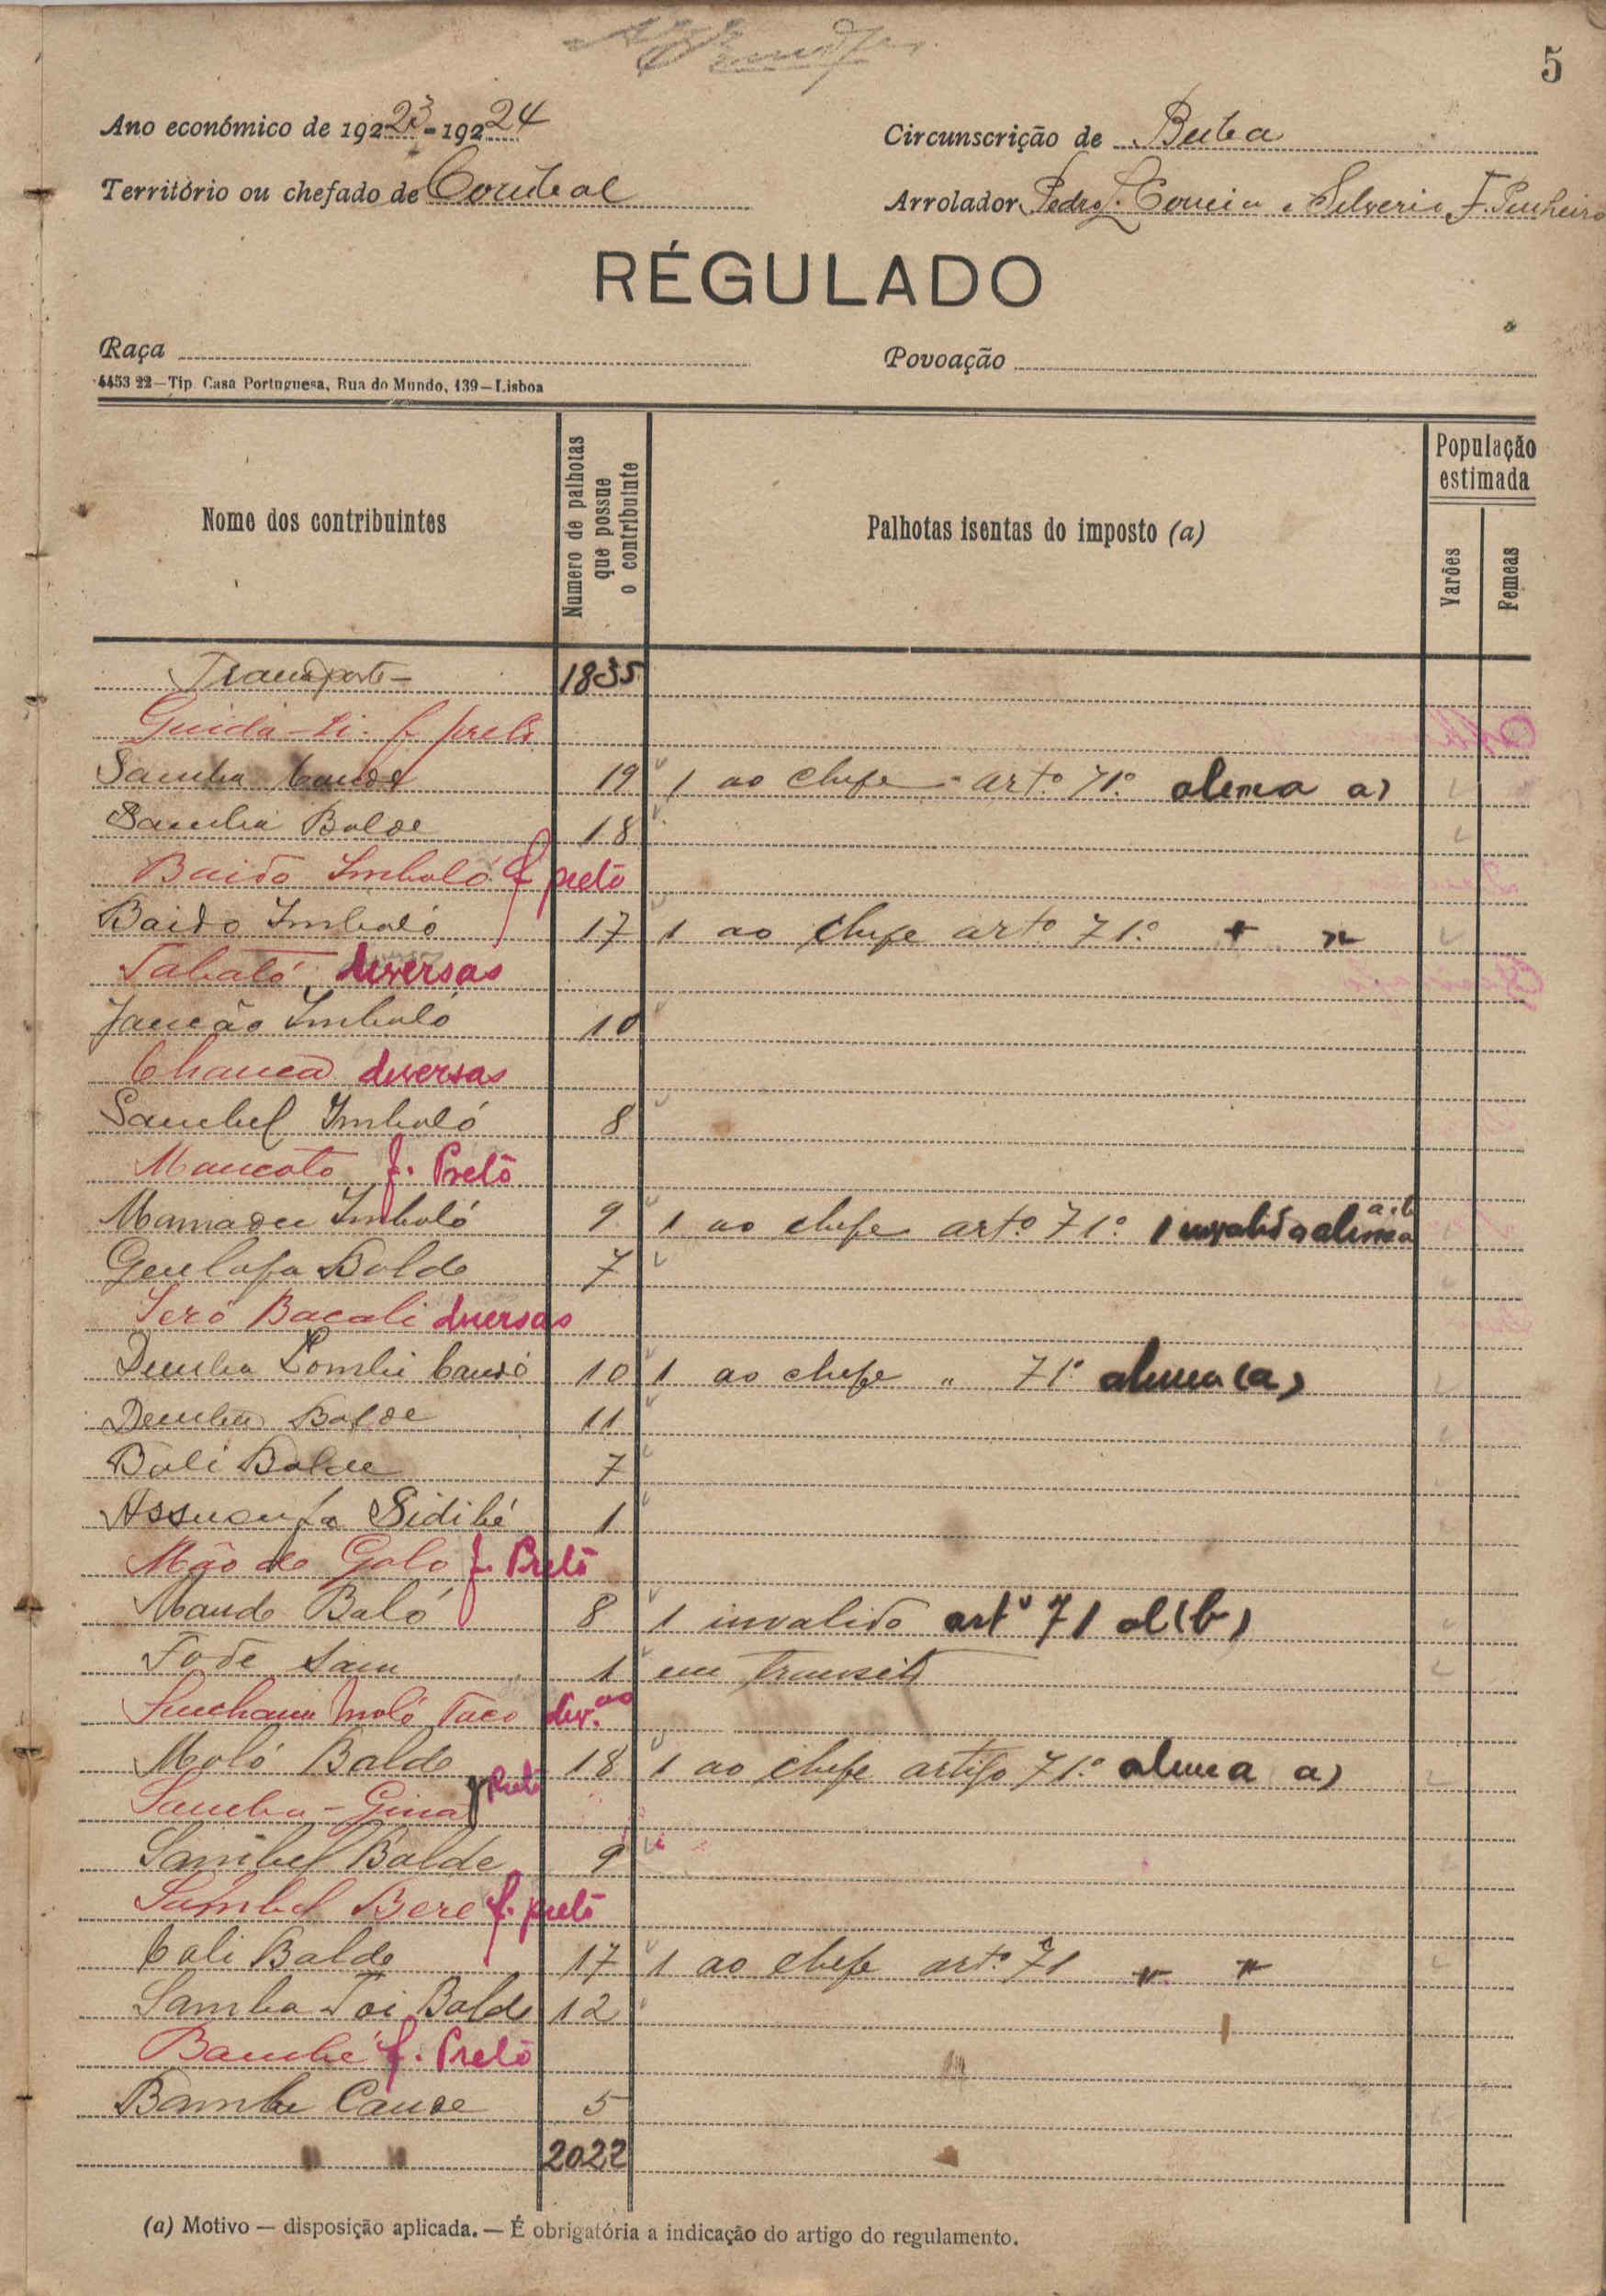 5
Ano económico de 19223-19224
Circunscrição de Buba
Território ou chefado de Corubal
Arrolador Pedro L. Correia e Silverio F. Pinheiro
RÉGULADO
Raça
Povoação
4453 22—Tip. Casa Portuguesa, Rua do Mundo, 139—Lisboa
Nome dos contribuintes
Numero de palhotas que possue o contribuinte
Palhotas isentas do imposto (a)
População estimada
Varões
Femeas
Transporte - 1835
Guida-Li. f preto
Samba Cande 19 1 ao chefe - artº 71º alinea a)
Samba Balde 18
Baido Imbaló f preto
Baido Imbaló 17 1 ao chefe artº 71º " "
Tabató diversas
Jancão Imbaló 10
Chanca diversas
Sambel Imbaló 8
Mancoto f. Preto
Mamadu Imbaló 9 1 ao chefe artº 71º 1 invalido alinea a. b
Balde 7
Seró Bacali diversas
Demba Lombi Candé 10 1 ao chefe " 71º alinea (a)
Demba Balde 11
Bali Balde 7
Sidibé 1
Mão de Galo f. Preto
Mande Baló 8 1 invalido artº 71 al (b)
Fode Sam 1 em transito
Sincham Moló Taco div.as
Moló Balde 18 1 ao chefe artigo 71º alinea a)
Samba-Gina f Preto
Sambel Balde 9
Sambel Bere f. preto
Cali Balde 17 1 ao chefe artº 71 " "
Samba Toi Balde 12
Bambé f. Preto
Bambe Cande 5
" " 2022
(a) Motivo — disposição aplicada. — É obrigatória a indicação do artigo do regulamento.